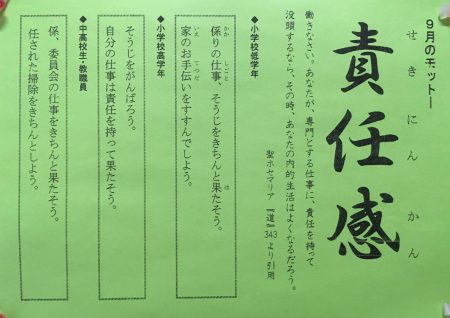 9月のモットー
せきにんかん
責任感
働きなさい。あなたが、専門とする仕事に、責任を持って
没頭するなら、その時、あなたの内的生活はよくなるだろう。
聖ホセマリア『道』343より引用
◆小学校低学年
係りの仕事、そうじをきちんと果たそう。
かか しごと は
家のお手伝いをすすんでしよう。
いえ てつだ
◆小学校高学年
そうじをがんばろう。
自分の仕事は責任を持って果たそう。
◆中高校生・教職員
係、委員会の仕事をきちんと果たそう。
任された掃除をきちんとしよう。